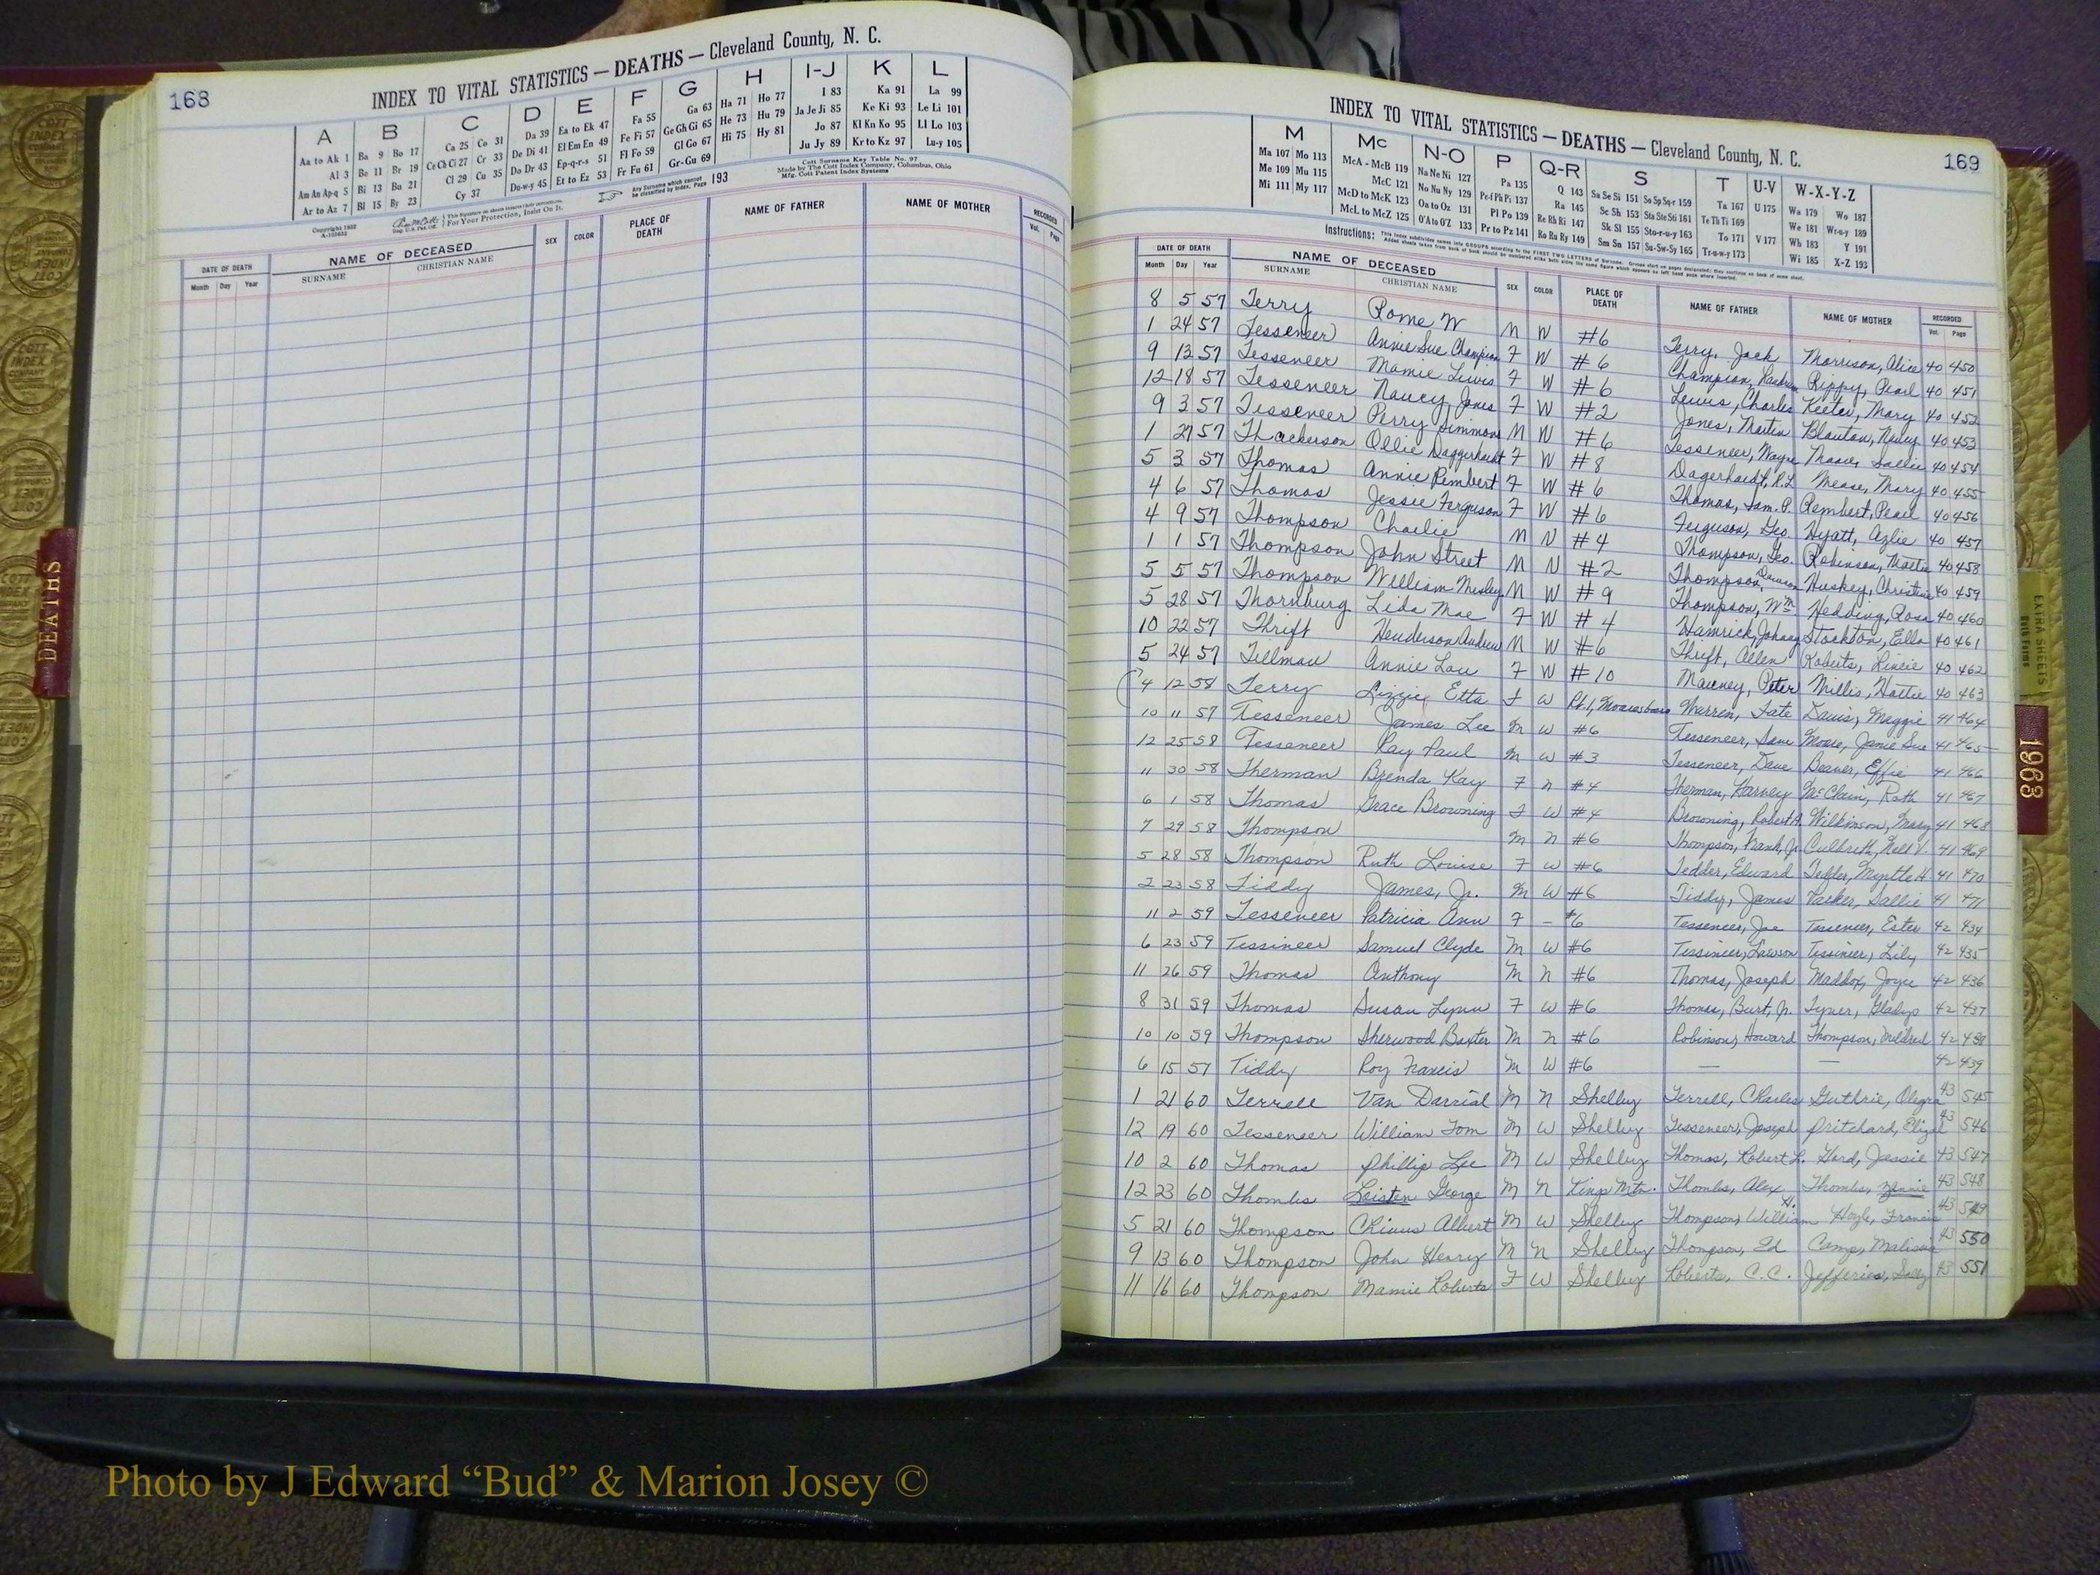 168
INDEX TO VITAL STATISTICS — DEATHS — Cleveland County, N. C.
A B C D E F G H I-J K L
Aa to Ak 1 Ba 9 Bo 17 Ca 25 Co 31 Da 39 Ea to Ek 47 Fa 55 Ga 63 Ha 71 Ho 77 I 83 Ka 91 La 99
Al 3 Be 11 Br 19 Ce Ch Ci 27 Cr 33 De Di 41 El Em En 49 Fe Fi 57 Ge Gh Gi 65 He 73 Hu 79 Ja Je Ji 85 Ke Ki 93 Le Li 101
Am An Ap-q 5 Bi 13 Bu 21 Cl 29 Cu 35 Do Dr 43 Ep-q-r-s 51 Fl Fo 59 Gl Go 67 Hi 75 Hy 81 Jo 87 Kl Kn Ko 95 Ll Lo 103
Ar to Az 7 Bl 15 By 23 Cy 37 Du-w-y 45 Et to Ez 53 Fr Fu 61 Gr-Gu 69 Ju Jy 89 Kr to Kz 97 Lu-y 105
Copyright 1952
For Your Protection, Insist On It.
Any Surname which cannot be classified by Index, Page 193
Cott Surname Key Table No. 97
Made by The Cott Index Company, Columbus, Ohio
Mfg. Cott Patent Index Systems
DATE OF DEATH NAME OF DECEASED SEX COLOR PLACE OF DEATH NAME OF FATHER NAME OF MOTHER RECORDED
Month Day Year SURNAME CHRISTIAN NAME Vol. Page
DEATHS
INDEX TO VITAL STATISTICS — DEATHS — Cleveland County, N. C.
169
M Mc N-O P Q-R S T U-V W-X-Y-Z
Ma 107 Mo 113 McA - McB 119 Na Ne Ni 127 Pa 135 Q 143 Sa Se Si 151 So Sp Sq-r 159 Ta 167 U 175 Wa 179 Wo 187
Me 109 Mu 115 McC 121 No Nu Ny 129 Pe-f Ph Pi 137 Ra 145 Sc Sh 153 Sta Ste Sti 161 Te Th Ti 169 We 181 Wr-u-y 189
Mi 111 My 117 McD to McK 123 Oa to Oz 131 Pl Po 139 Re Rh Ri 147 Sk Sl 155 Sto-r-u-y 163 To 171 V 177 Wh 183 Y 191
McL to McZ 125 O'A to O'Z 133 Pr to Pz 141 Ro Ru Ry 149 Sm Sn 157 Su-Sw-Sy 165 Tr-u-w-y 173 Wi 185 X-Z 193
Instructions: This index subdivides names into GROUPS according to the FIRST TWO LETTERS of Surname.
DATE OF DEATH NAME OF DECEASED SEX COLOR PLACE OF DEATH NAME OF FATHER NAME OF MOTHER RECORDED
Month Day Year SURNAME CHRISTIAN NAME Vol. Page
8 5 57 Terry Rome W M W #6 Terry, Jack Morrison, Alice 40 450
1 24 57 Tesseneer Annie Sue Champion F W #6 Champion, Rippy, Pearl 40 451
9 12 57 Tesseneer Mamie Lewis F W #6 Lewis, Charles Keeter, Mary 40 452
12 18 57 Tesseneer Nancy Jones F W #2 Jones, Martin Blanton, Nancy 40 453
9 3 57 Tesseneer Perry Simmons M W #6 Tesseneer, Wayne Moore, Sallie 40 454
1 27 57 Thackerson Ollie Daggerhardt F W #8 Dagerhardt, R.L. Mease, Mary 40 455
5 3 57 Thomas Annie Rembert F W #6 Thomas, Sam. P. Rembert, Pearl 40 456
4 6 57 Thomas Jessie Ferguson F W #6 Ferguson, Geo. Hyatt, Azlie 40 457
4 9 57 Thompson Charlie M N #4 Thompson, Geo. Robinson, Martha 40 458
1 1 57 Thompson John Street M N #2 Thompson, Dawson Huskey, Christine 40 459
5 5 57 Thompson William Wesley M W #9 Thompson, Wm Hedding, Rosa 40 460
5 28 57 Thornburg Lida Mae F W #4 Hamrick, Johnny Stockton, Ella 40 461
10 22 57 Thrift Henderson Andrew M W #6 Thrift, Allen Roberts, 40 462
5 24 57 Tillman Annie Lou F W #10 Mauney, Peter Willis, Hattie 40 463
4 12 58 Terry Lizzie Etta F W Rt. 1, Mooresboro Warren, Tate Davis, Maggie 41 464
10 11 57 Tesseneer James Lee M W #6 Tesseneer, Sam Moore, Janie Sue 41 465
12 25 58 Tesseneer Ray Paul M W #3 Tesseneer, Dave Beaver, Effie 41 466
11 30 58 Therman Brenda Kay F N #4 Therman, Harvey McClain, Ruth 41 467
6 1 58 Thomas Grace Browning F W #4 Browning, Robert A. Wilkinson, Mary 41 468
7 29 58 Thompson M N #6 Thompson, Frank, Jr. Culbreth, V. 41 469
5 28 58 Thompson Ruth Louise F W #6 Tedder, Edward Tedder, Myrtle H. 41 470
2 23 58 Tiddy James, Jr. M W #6 Tiddy, James Parker, Sallie 41 471
11 2 59 Tesseneer Patricia Ann F — #6 Tesseneer, Joe Tesseneer, Ester 42 434
6 23 59 Tessineer Samuel Clyde M W #6 Tessineer, Lawson Tessineer, Lily 42 435
11 26 59 Thomas Anthony M N #6 Thomas, Joseph Maddox, Joyce 42 436
8 31 59 Thomas Susan Lynn F W #6 Thomas, Burt, Jr. Tyner, Gladys 42 437
10 10 59 Thompson Sherwood Baxter M N #6 Robinson, Howard Thompson, Mildred 42 438
6 15 57 Tiddy Roy Francis M W #6 — — 42 439
1 21 60 Terrell Van M N Shelby Terrell, Charles Guthrie, 43 545
12 19 60 Tesseneer William Tom M W Shelby Tesseneer, Joseph Pritchard, Eliza 43 546
10 2 60 Thomas Phillip Lee M W Shelby Thomas, Robert L. Ford, Jessie 43 547
12 23 60 Thombs George M N Kings Mtn. Thombs, Alex Thombs, 43 548
5 21 60 Thompson Albert M W Shelby Thompson, William H. Hoyle, Francis 43 549
9 13 60 Thompson John Henry M N Shelby Thompson, Ed Camp, Malissia 43 550
11 16 60 Thompson Mamie Roberts F W Shelby Roberts, C.C. Jefferies, Sally 43 551
EXTRA SHEETS
1963
COTT INDEX COMPANY
Photo by J Edward “Bud” & Marion Josey ©